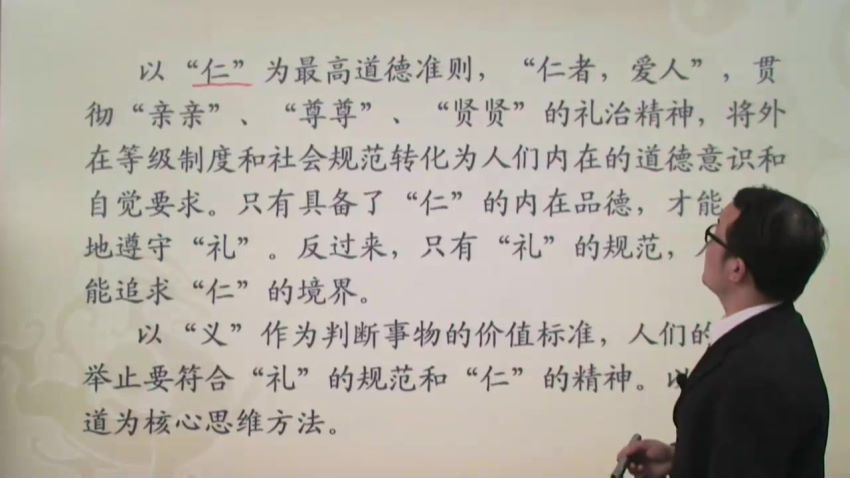 以“仁”为最高道德准则，“仁者，爱人”，贯
彻“亲亲”、“尊尊”、“贤贤”的礼治精神，将外
在等级制度和社会规范转化为人们内在的道德意识和
自觉要求。只有具备了“仁”的内在品德，才能
地遵守“礼”。反过来，只有“礼”的规范，
能追求“仁”的境界。
以“义”作为判断事物的价值标准，人们的
举止要符合“礼”的规范和“仁”的精神。以
道为核心思维方法。